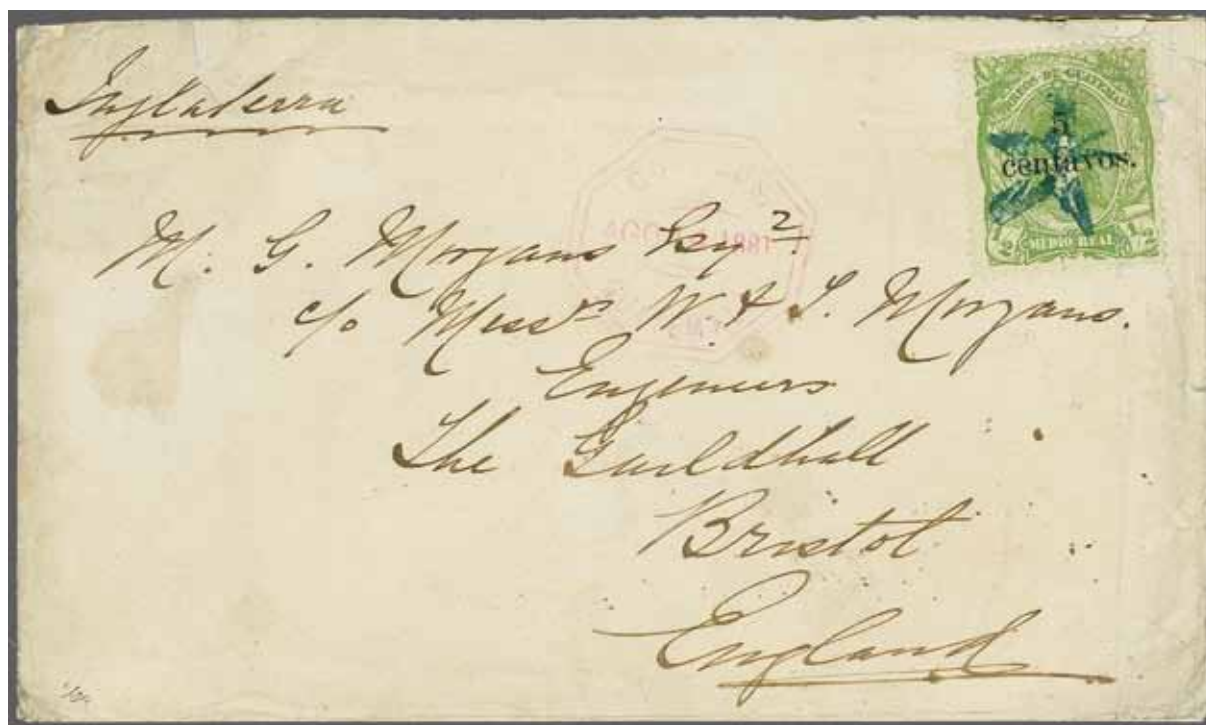 Inglaterra
CORREOS DE GUATEMALA
5
centavos.
1/2 MEDIO REAL 1/2
M. G. Morgans Esqr.
1881
c/o Messrs W. & S. Morgans.
Engineers
The Guildhall
Bristol
England